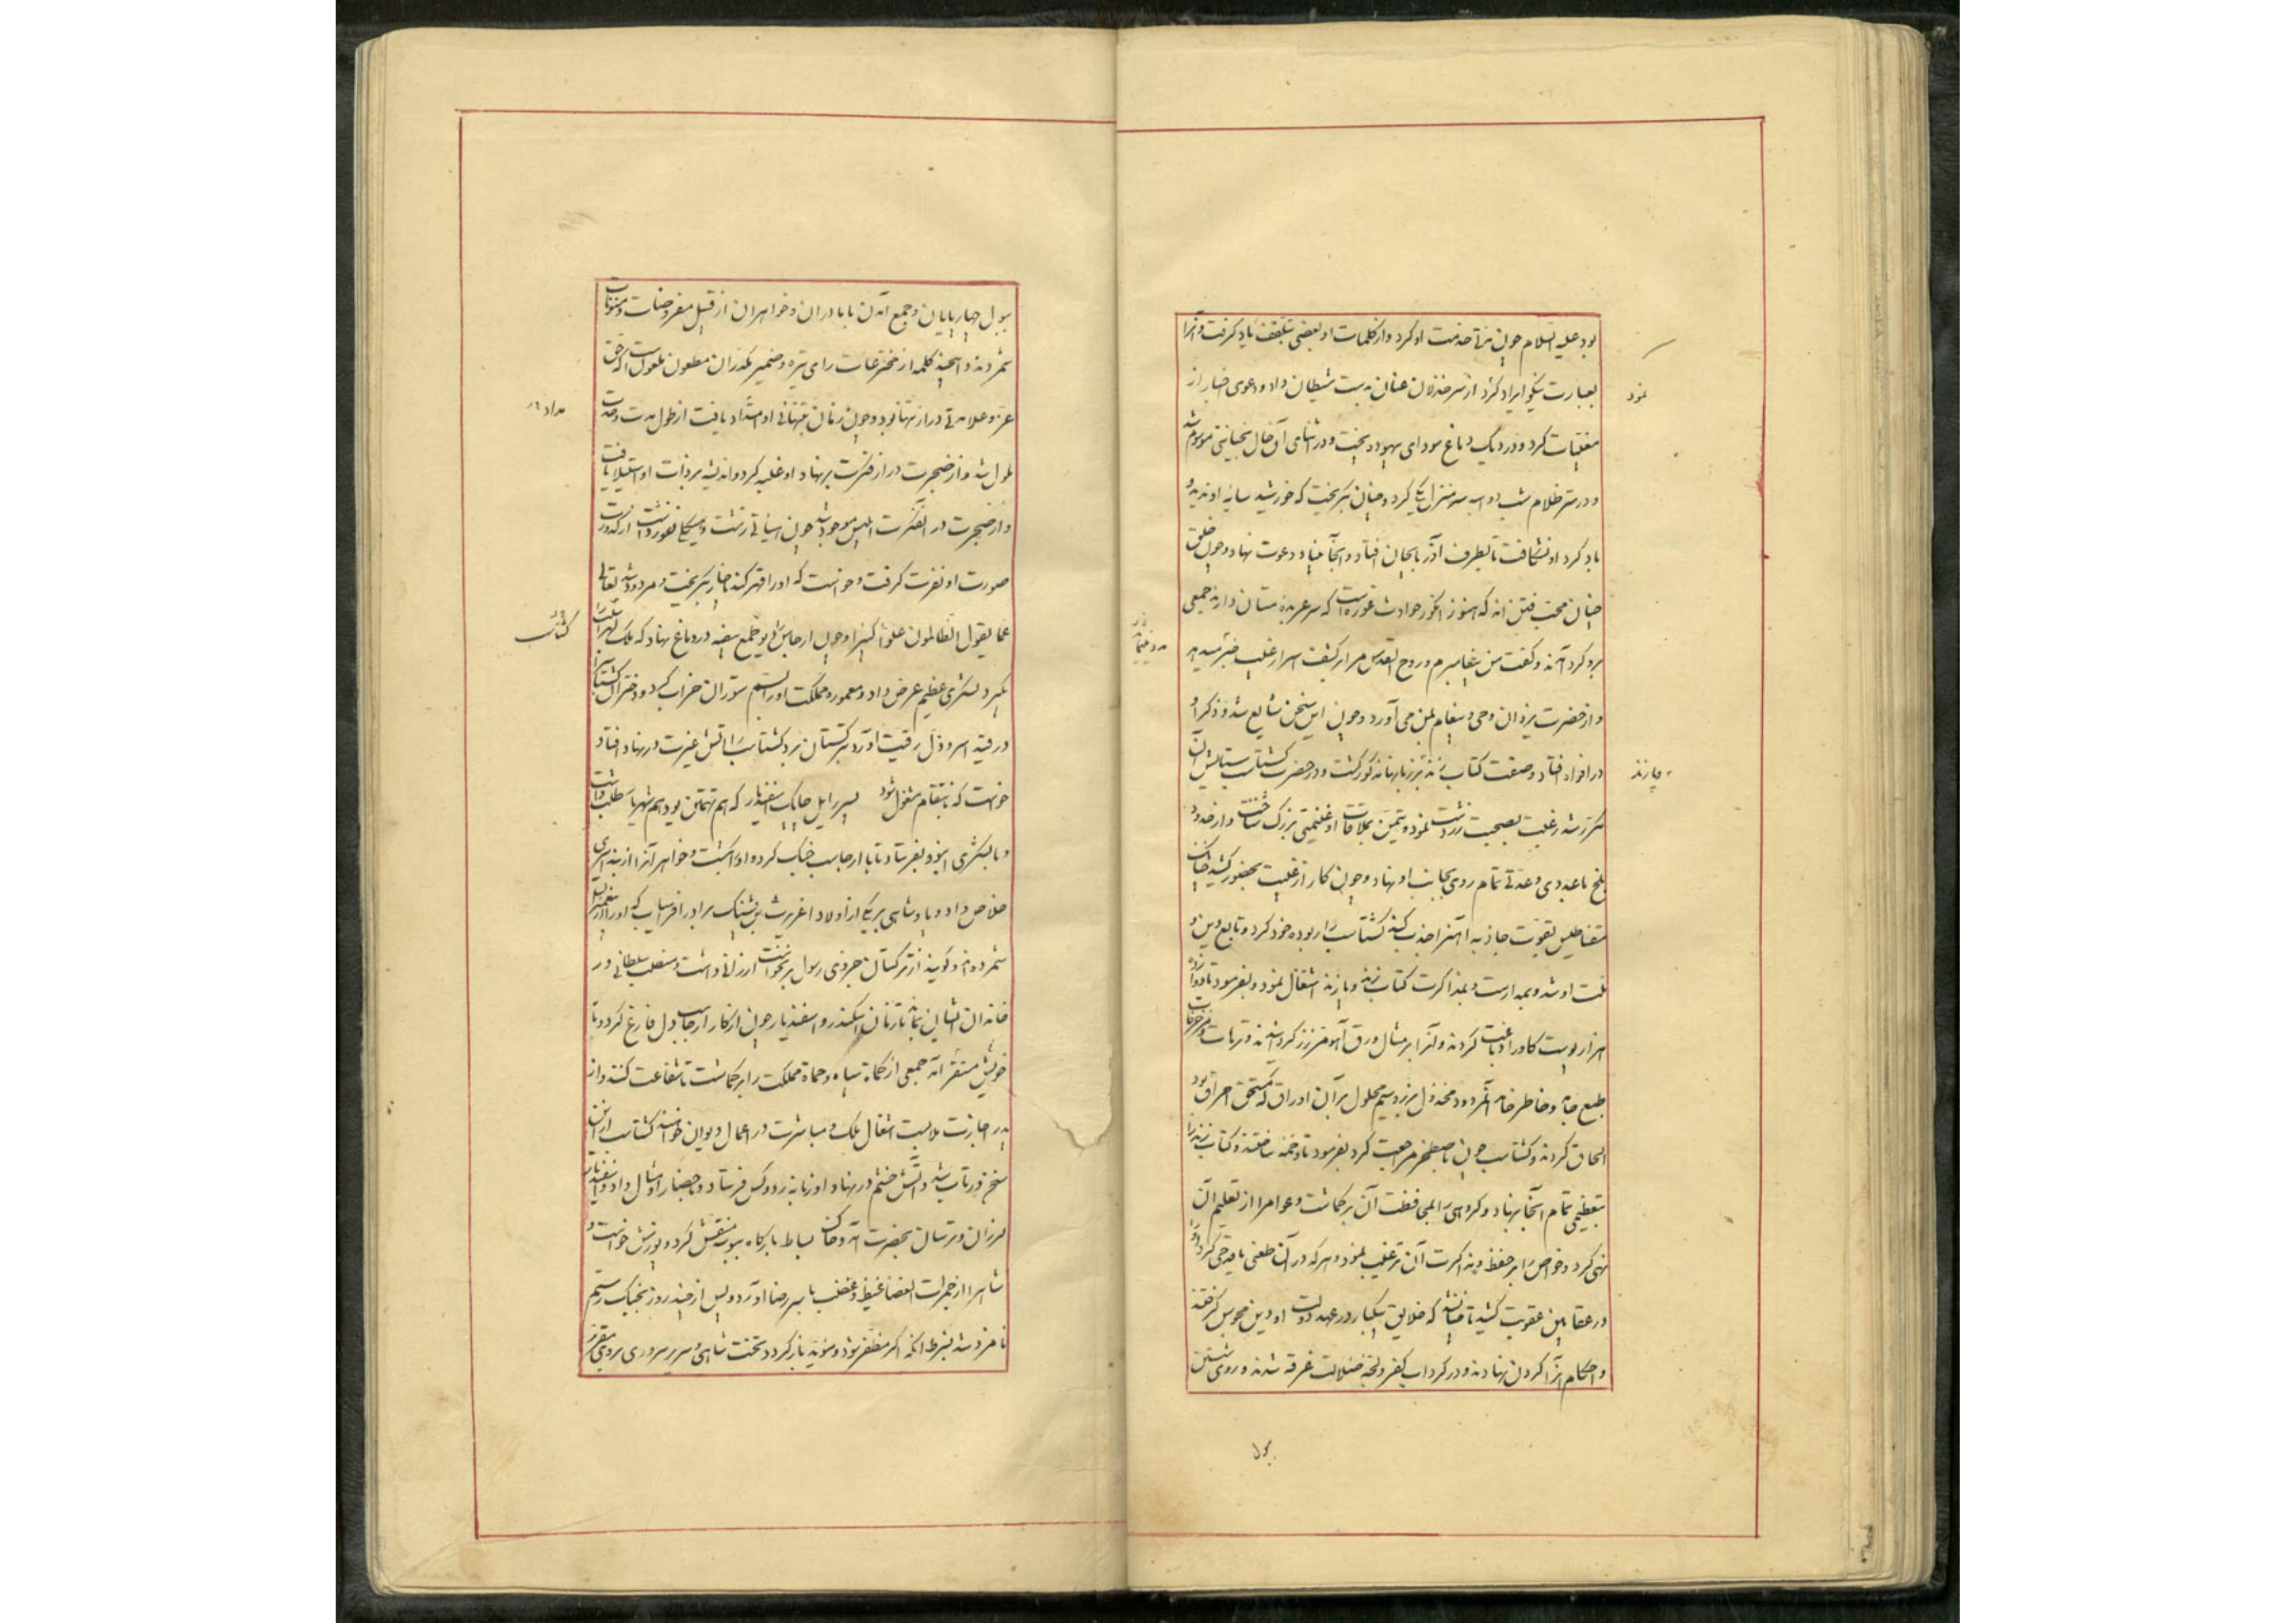 بود علیه السلام چون مدتی خدمت او کرد و از کلمات او بعضی تلقف یاد گرفت و آنرا
بعبارت نیکو ایراد کرد از سر خذلان عنان بدست شیطان داد و دعوی اخبار از
نمود
مغیبات کرد و در دیک دماغ سودای بیهوده پخت و در اثنای آن حال بخیانتی موسوم شد
و در ستر ظلام شب دو سه منزل یکی کرد و چنان بگریخت که خورشید سایه او ندید و
باد کرد او نشکافت تا بطرف آذربایجان افتاد و آنجا بنیاد دعوت نهاد و چون خلق
جهان محب فتن اند که هنوز انگور حوادث غوره است که سر عربده مستان دارند جمعی
برو گرد آمدند و گفت من پیغامبرم و روح القدس مرا از کشف اسرار غیب خبر میدهد
و از حضرت یزدان وحی و پیغام بمن می آورد و چون این سخن شایع شد و ذکر او
در افواه افتاد و صفت کتاب زند بر زبانها مذکور گشت و در حضرت گشتاسب ستایش آن
و پازند
مکرر شد رغبت بصحبت زردشت نمود و تیمن بملاقات او غنیمتی بزرگ شناخت و از حدود
بلخ با عددی و عدتی تمام روی بجانب او نهاد و چون کار از غیبت بحضور کشید چنانک
مقناطیس بقوت جاذبه آهنرا جذب کند گشتاسب را ربوده خود کرد و تابع دین و
ملت او شد و بمدارست و بمذاکرت کتاب زند و پازند اشتغال نمود و بفرمود تا دوازده
هزار پوست گاو را دباغت کردند و آنرا بر مثال ورق آهو مزرر کردانیدند و ترهات و مزخرفات
طبع و خاطر خام آن مردود مخذول بزر و سیم محلول بر آن اوراق که مستحق احراق بود
الحاق کردند و گشتاسب چون باصطخر مراجعت کرد بفرمود تا دخمه ساختند و کتاب زند را
بتعظیمی تمام آنجا بنهاد و گروهی را بمحافظت آن برگماشت و عوام را از تعلیم آن
نهی کرد و خواص را بر حفظ و مذاکرت آن ترغیب نمود و هر که در آن طعنی یا قدحی کرد او را
در عقابین عقوبت کشید تا چنانشد که خلایق بیکبار در عهد دولت او دین مجوس گرفتند
و احکام آنرا گردن نهادند و در گرداب کفر و لجه ضلالت غرقه شدند و روی شستن
ببول
ببول چهارپایان و جمع آمدن با مادران و خواهران از قبیل مفروضات و مسنونات
شمردند و اینچند کلمه از مخترعات رای تیره و ضمیر مکدر آن مطعون ملعون است که حق
عز و علا مدتی دراز تنها بود و چون زمان تنهائی او امتداد یافت از طول مدت وحدت
ملول شد و از ضجرت دراز فکرت بر نهاد او غلبه کرد و اندیشه بر ذات او استیلا یافت
و از ضجرت در آن فکرت ابلیس موجود شد چون
صورت او نفرت گرفت و خواست که او را قهر کند بگریخت و مردود شد تعالی
عما یقول الظالمون علوا کبیرا و چون ارجاسب را دیو طمع بیضه در دماغ نهاد که ملک لهراسب را
گشتاسب
بگیرد لشکری عظیم عرض داد و معموره مملکت او را بسم ستوران خراب کرد و دختران گشتاسب را
در قید اسر و ذل رقیت آورد بترکستان برد گشتاسب را آتش غیرت در نهاد افتاد
خواست که بانتقام مشغول شود پسر رایل چابک اسفندیار که هم تهمتن بود هم شهریار طلب داشت
و با لشکری انبوه بفرستاد تا با ارجاسب جنگ کرد و او را بکشت و خواهرانرا از بند اسری
خلاص داد و پادشاهی بر یکی از اولاد اغریرث بن پشنک برادر افراسیاب که او را از پیغمبران
شمرده اند و گویند از ترکستان جز وی رسول بر نخواست ارزانی داشت و منصب سلطانی در
خاندان ایشان بماند تا زمان اسکندر و اسفندیار چون از کار ارجاسب دل فارغ کرد و با
خویش مستقر آمد جمعی از کماة سپاه و حماة مملکت را برگماشت تا شفاعت کنند و از
پدر اجازت ملابست اشغال ملک و مباشرت در اعمال دیوان خواستند گشتاسب از این
سخن در تاب شد و آتش خشم در نهاد او زبانه زد و کس فرستاد و باحضار او مثال داد و اسفندیار
لرزان و ترسان بحضرت آمد و خاک بساط بارگاه ببوسه منقش کرد و پوزش خواست و
شاه را از جمرات الغضا غیظ و غضب با سر رضا آورد و پس از چند روز بجنک رستم
نامزد شد بشرط آنکه اگر مظفر شود و مؤید باز گردد تخت شاهی و سریر سروری بر وی مقرر